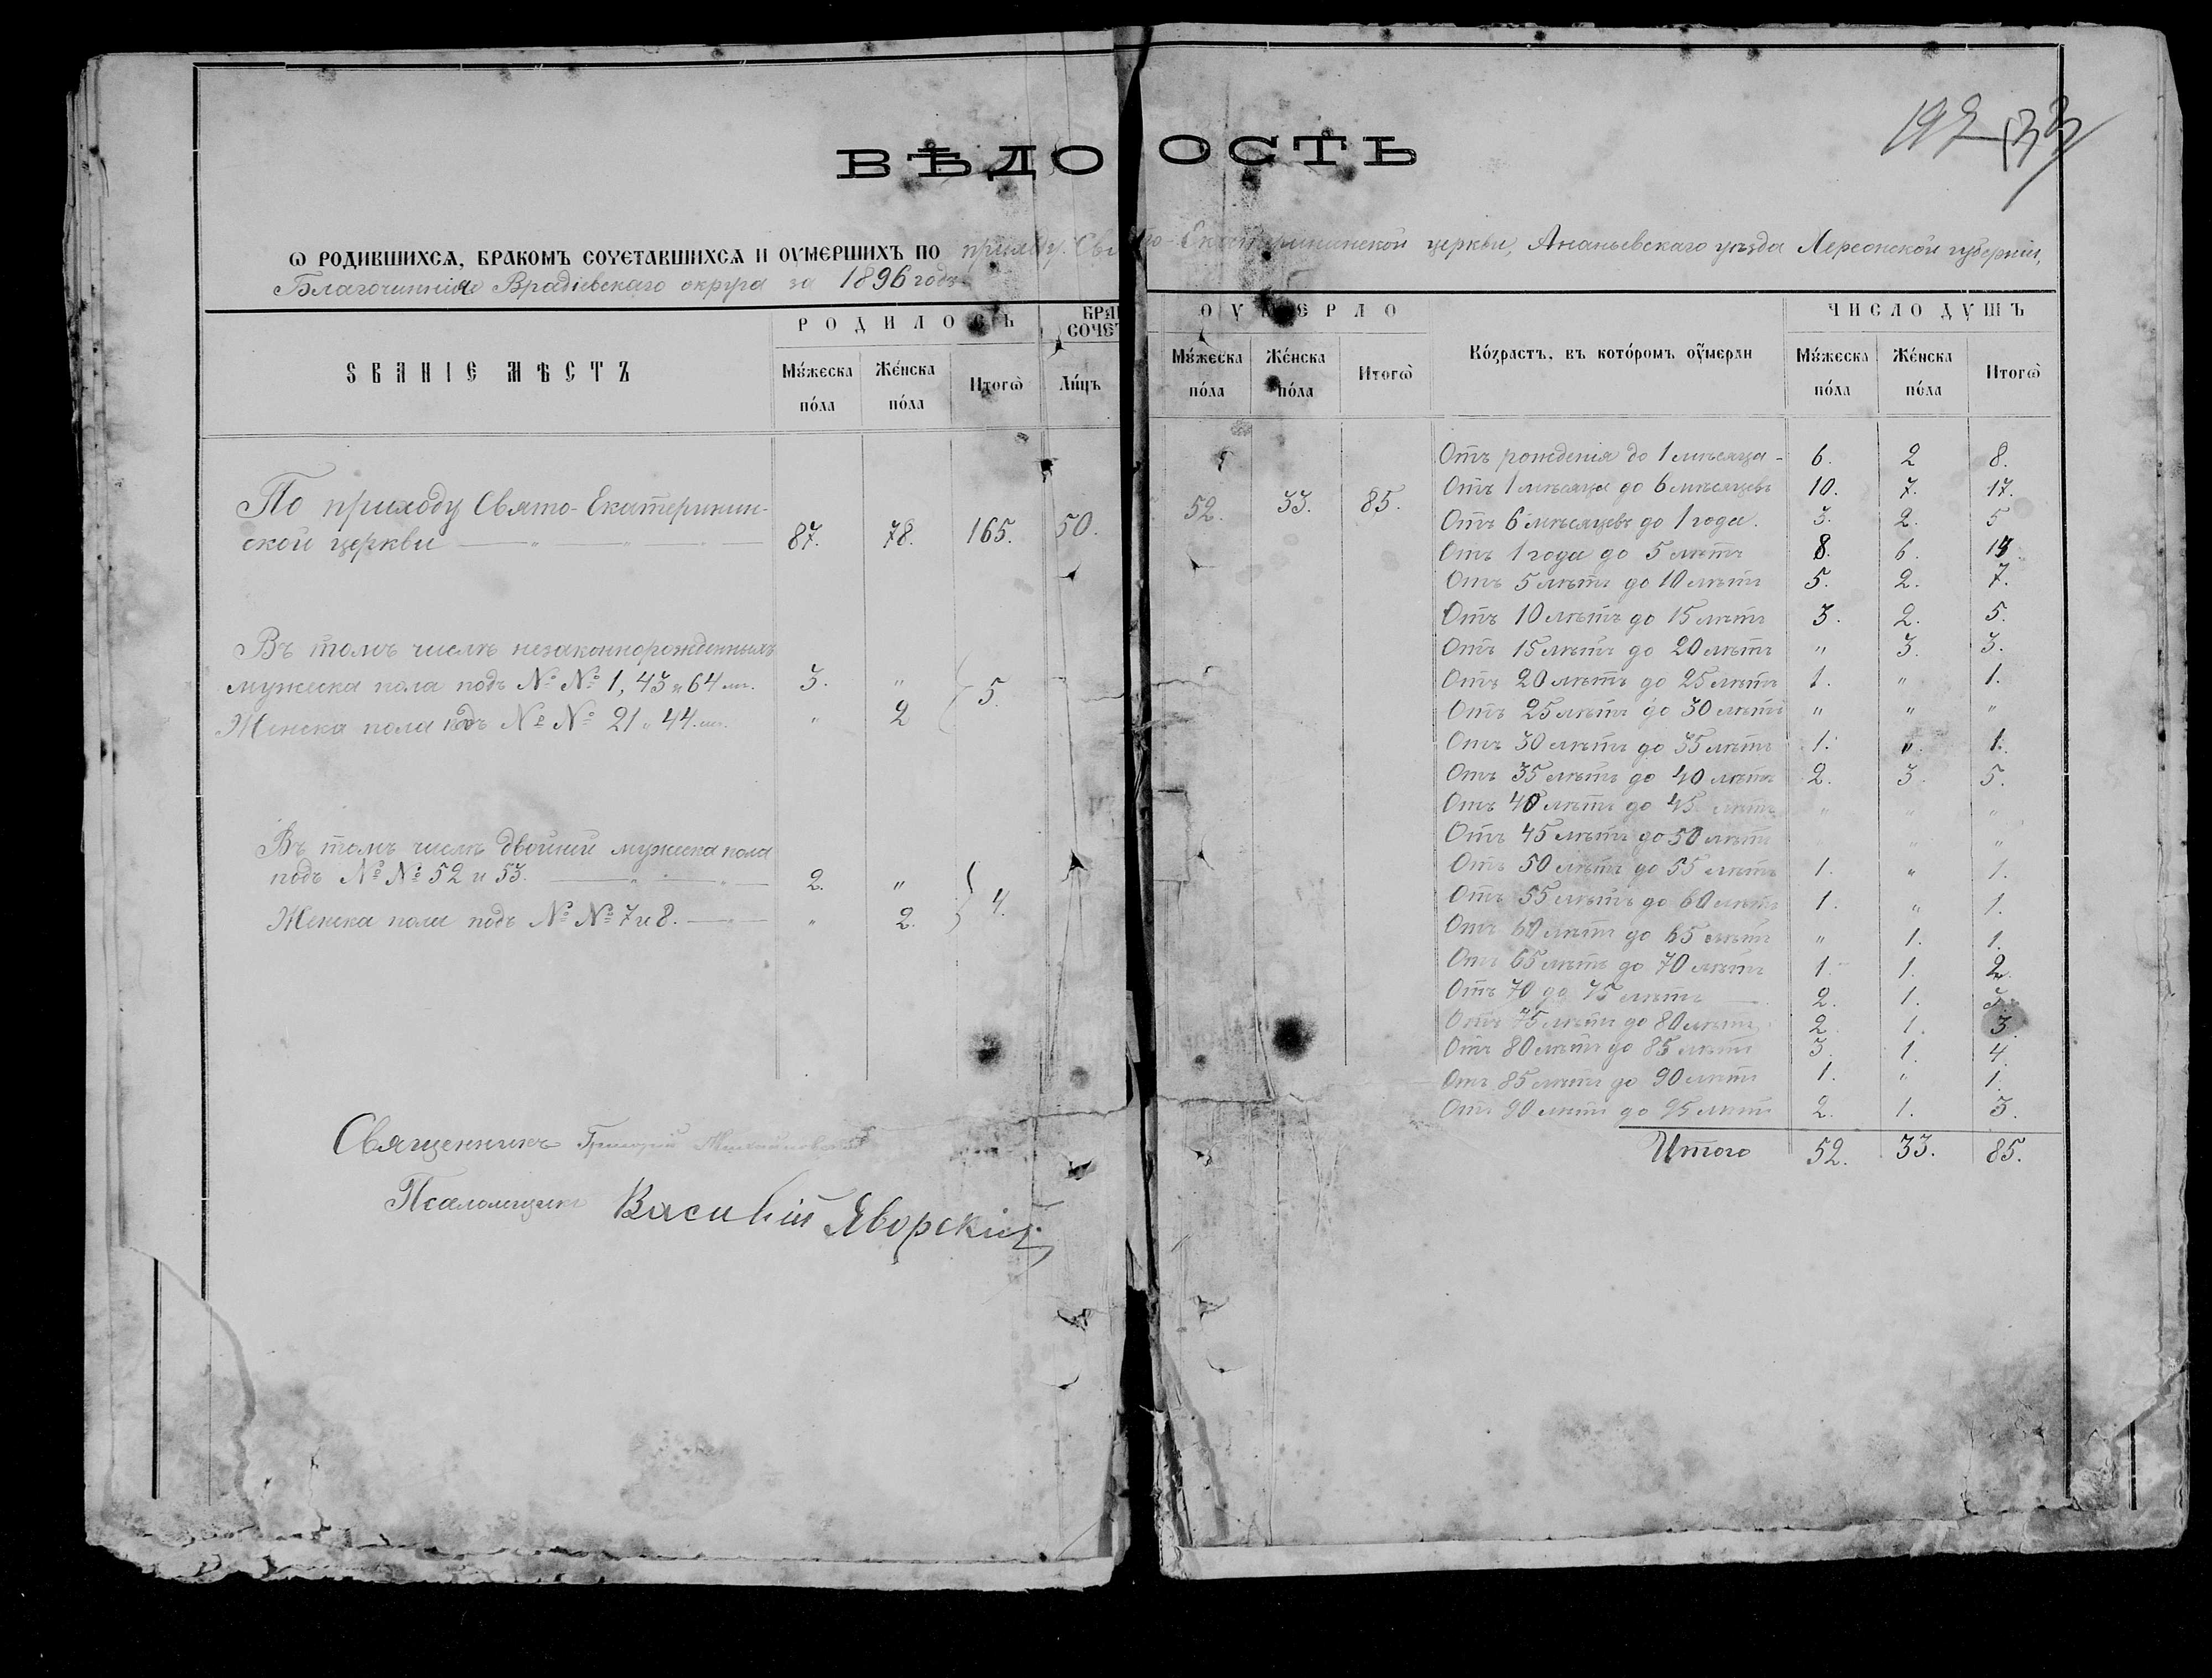 ВѢДО ОСТЬ
Ѡ РОДИВШИХСѦ, БРАКОМЪ СОЧЕТАВШИХСѦ И ОУМЕРШИХЪ ПО приходу Свято-Екатерининской церкви, Ананьевскаго уѣзда Херсонской губерніи,
Благочинія Врадіевскаго округа за 1896 годъ
ЗВАНІЕ МѢСТЪ
РОДИЛОСЬ
Мꙋ́жеска по́ла
Же́нска по́ла
Итогѡ̀
БРА
СОЧЕТ
Ли́цъ
ОУМЕРЛО
Мꙋ́жеска по́ла
Же́нска по́ла
Итогѡ̀
Во́зрастъ, въ кото́ромъ оу҆́мерли
ЧИСЛО ДУШЪ
Мꙋ́жеска по́ла
Же́нска по́ла
Итогѡ̀
По приходу Свято-Екатеринин-
ской церкви 87. 78. 165. 50. 52. 33. 85.
Въ томъ числѣ незаконнорожденныхъ
мужеска пола подъ №№ 1, 43 и 64 3. " 5.
Женска пола подъ №№ 21 и 44 " 2
Въ томъ числѣ двойни мужеска пола
подъ №№ 52 и 53. 2. " 4.
Женска пола подъ №№ 7 и 8. " 2.
Священникъ Григорий
Псаломщикъ Василій Яворскій
Отъ рожденія до 1 мѣсяца - 6. 2 8.
Отъ 1 мѣсяца до 6 мѣсяцевъ 10. 7. 17.
Отъ 6 мѣсяцевъ до 1 года. 3. 2. 5
Отъ 1 года до 5 лѣтъ 8. 6. 14
Отъ 5 лѣтъ до 10 лѣтъ 5. 2. 7.
Отъ 10 лѣтъ до 15 лѣтъ 3. 2. 5.
Отъ 15 лѣтъ до 20 лѣтъ " 3. 3.
Отъ 20 лѣтъ до 25 лѣтъ 1. " 1.
Отъ 25 лѣтъ до 30 лѣтъ " " "
Отъ 30 лѣтъ до 35 лѣтъ 1. " 1.
Отъ 35 лѣтъ до 40 лѣтъ 2. 3. 5.
Отъ 40 лѣтъ до 45 лѣтъ " " "
Отъ 45 лѣтъ до 50 лѣтъ " " "
Отъ 50 лѣтъ до 55 лѣтъ 1. " 1.
Отъ 55 лѣтъ до 60 лѣтъ 1. " 1.
Отъ 60 лѣтъ до 65 лѣтъ " 1. 1.
Отъ 65 лѣтъ до 70 лѣтъ 1. 1. 2.
Отъ 70 до 75 лѣтъ 2. 1. 3.
Отъ 75 лѣтъ до 80 лѣтъ 2. 1. 3.
Отъ 80 лѣтъ до 85 лѣтъ 3. 1. 4.
Отъ 85 лѣтъ до 90 лѣтъ 1. " 1.
Отъ 90 лѣтъ до 95 лѣтъ 2. 1. 3.
Итого 52. 33. 85.